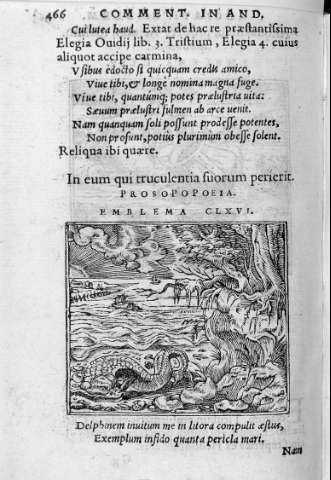 466 COMMENT. IN AND.
Cui lutea haud. Extat de hac re præstantissima
Elegia Ouidij lib. 3. Tristium, Elegia 4. cuius
aliquot accipe carmina,
Vsibus edocto si quicquam credis amico,
Viue tibi, & longè nomina magna fuge.
Viue tibi, quantumq; potes prælustria vita:
Sæuum prælustri fulmen ab arce venit.
Nam quanquam soli possunt prodesse potentes,
Non prosunt, potius plurimùm obesse solent.
Reliqua ibi quære.
In eum qui truculentia suorum perierit.
PROSOPOPOEIA.
EMBLEMA CLXVI.
Delphinem inuitum me in litora compulit æstus,
Exemplum infido quanta pericla mari.
Nam